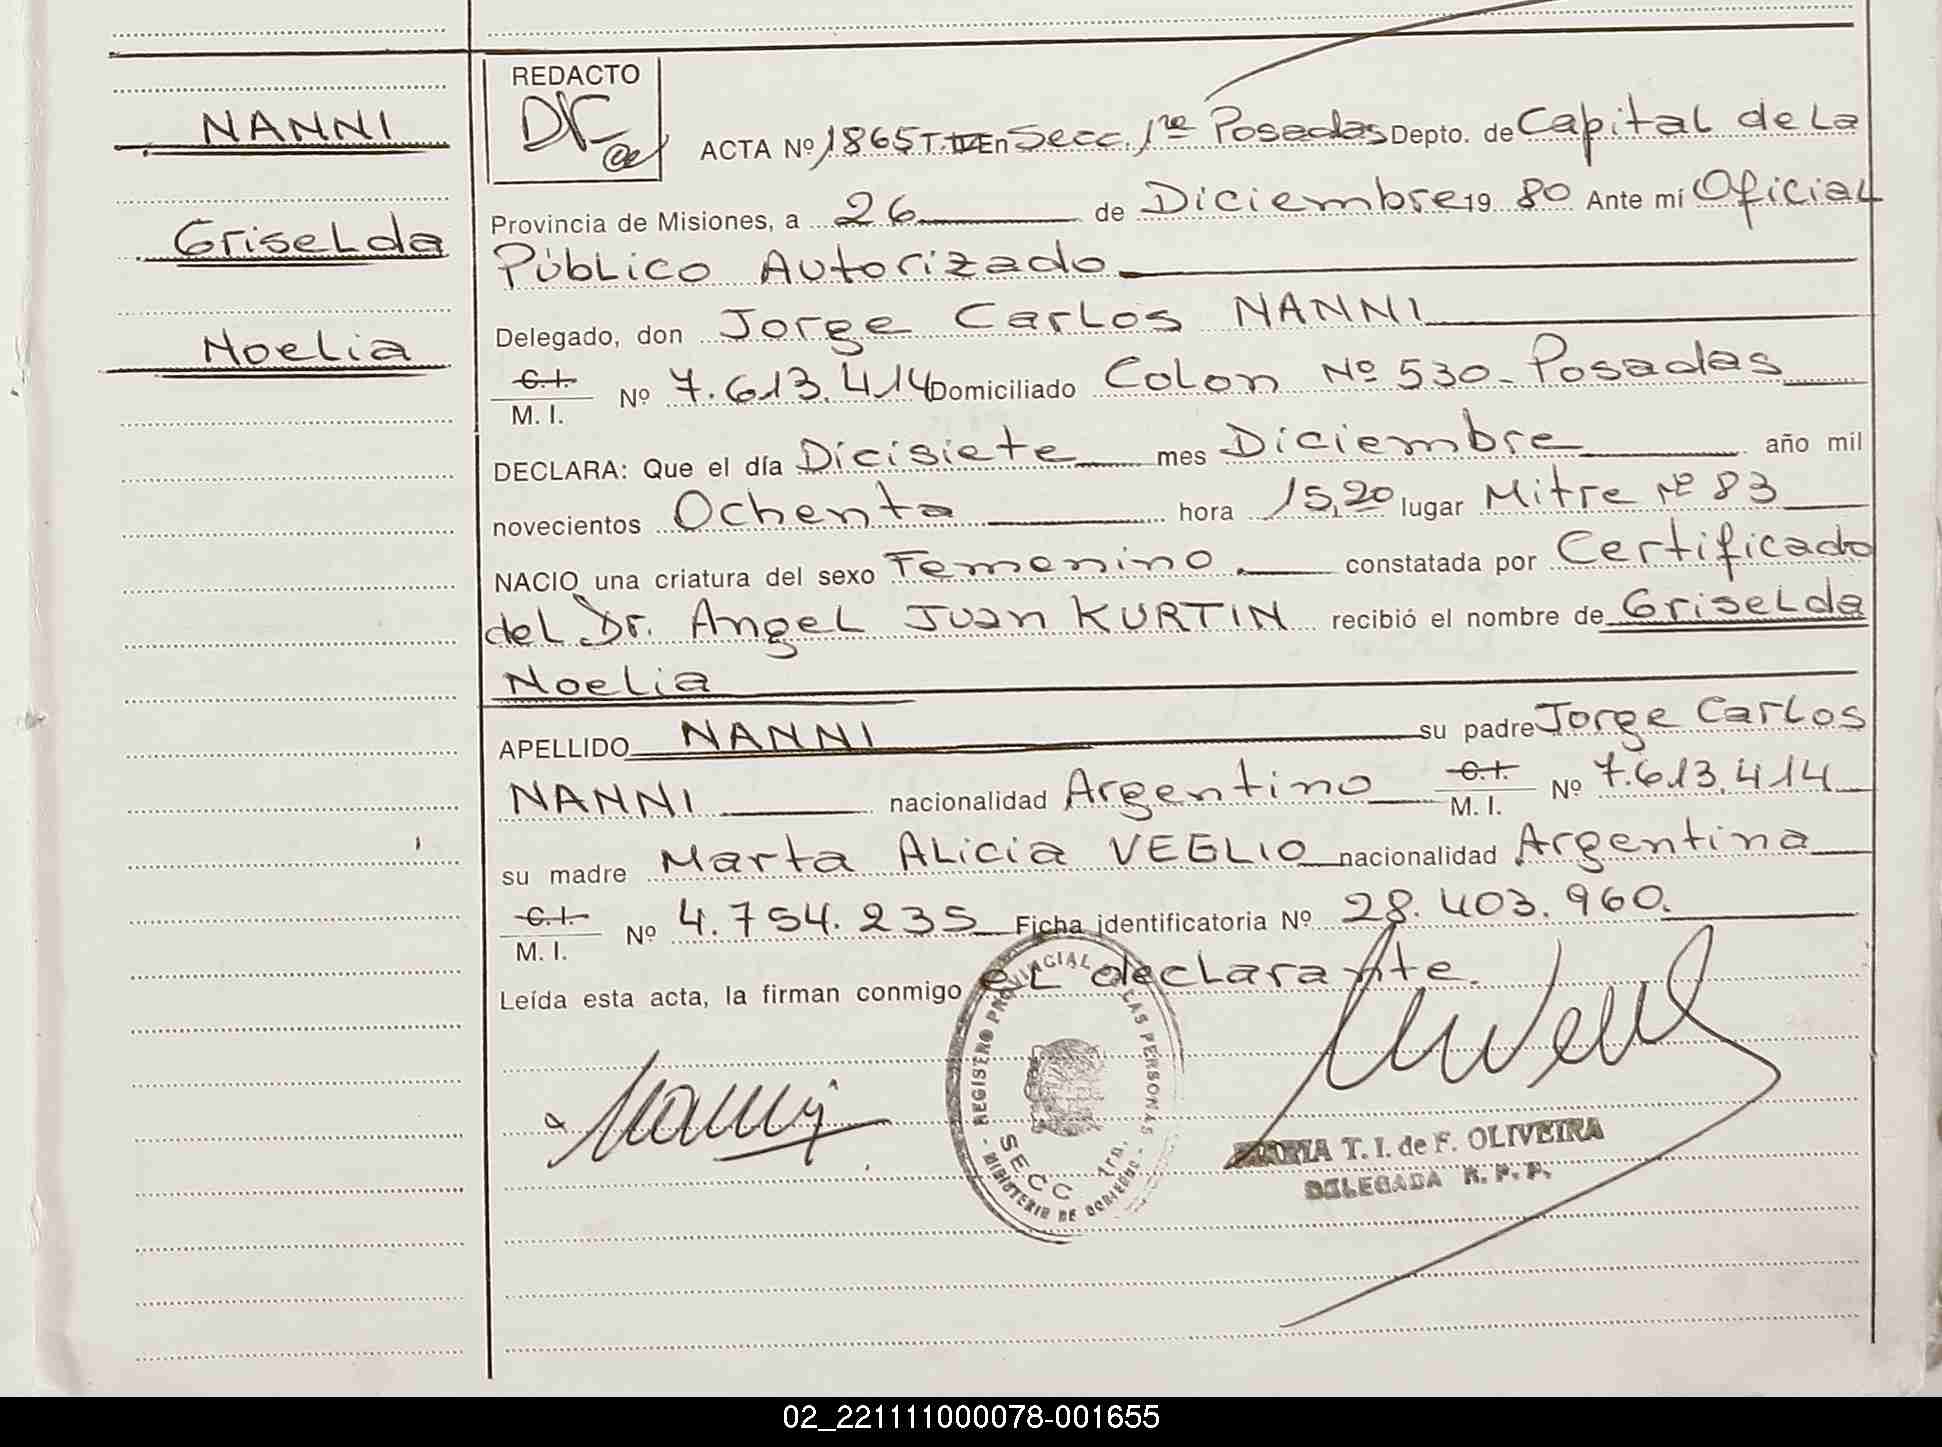 NANNI
Griselda
Noelia
REDACTO
ACTA Nº 1865 T. IV En Secc. 1ra Posadas Depto. de Capital de La
Provincia de Misiones, a 26 de Diciembre 19 80 Ante mí Oficial
Público Autorizado
Delegado, don Jorge Carlos NANNI
C.I.
M. I. Nº 7.613.414 Domiciliado Colon Nº 530- Posadas
DECLARA: Que el día Dicisiete mes Diciembre año mil
novecientos Ochenta hora 15,20 lugar Mitre Nº 83
NACIO una criatura del sexo Femenino. constatada por Certificado
del Dr. Angel Juan KURTIN recibió el nombre de Griselda
Noelia
APELLIDO NANNI su padre Jorge Carlos
NANNI nacionalidad Argentino C.I. M. I. Nº 7.613.414
su madre Marta Alicia VEGLIO nacionalidad Argentina
C.I.
M. I. Nº 4.754.235 Ficha identificatoria Nº 28.403.960.
Leída esta acta, la firman conmigo el declarante.
REGISTRO PROVINCIAL DE LAS PERSONAS
SECC. 1ra.
- MINISTERIO DE GOBIERNO -
T. I. de F. OLIVEIRA
DELEGADA R. P. P.
02_221111000078-001655